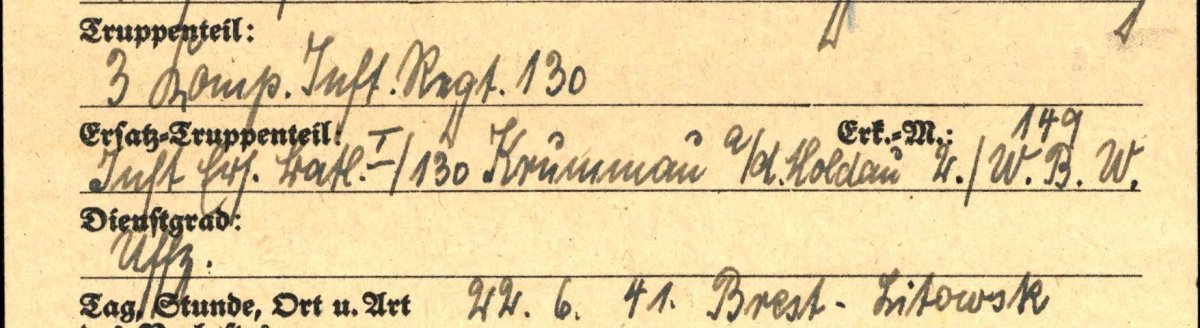 Truppenteil:
3 Komp. Inft. Regt. 130
Ersatz-Truppenteil: Erk.-M.: 149
Inft Ers. Batl. I/130 Krummau a/d. Moldau 2./W.B.W.
Dienstgrad:
Uffz.
Tag, Stunde, Ort u. Art 22. 6. 41. Brest-Litowsk